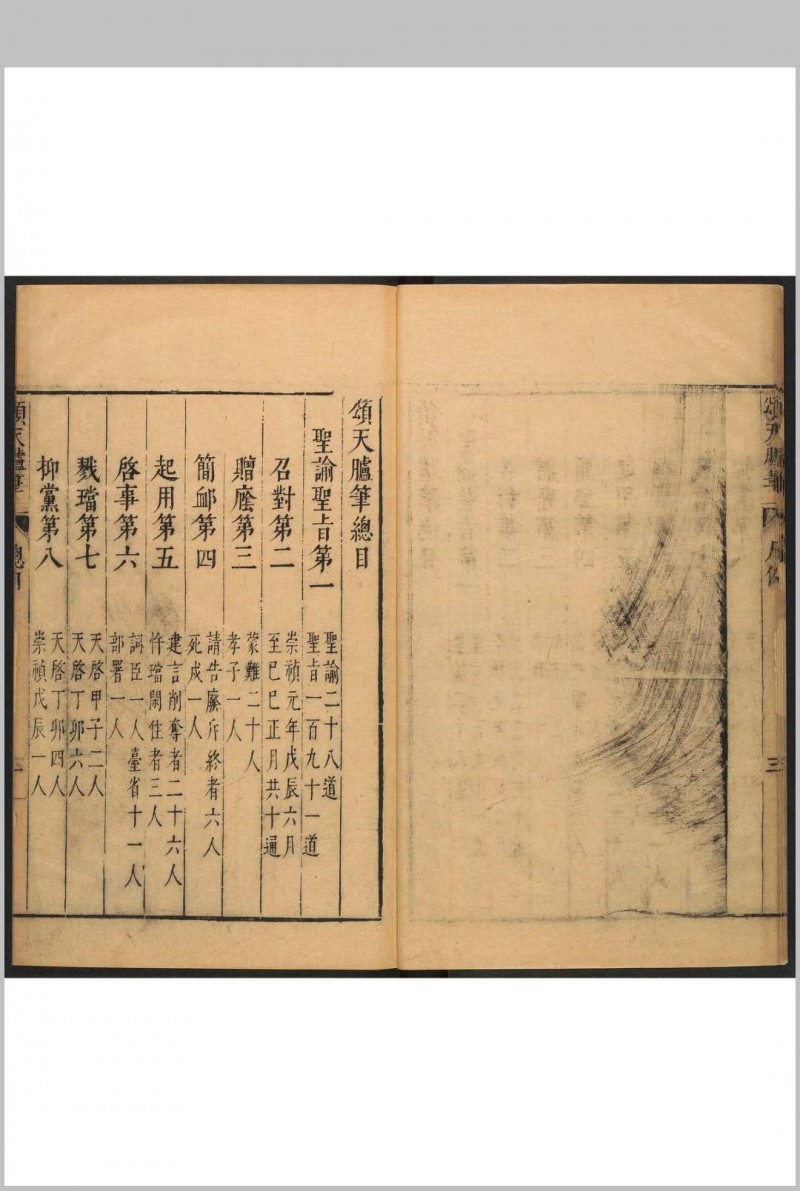 頌天臚筆
三
頌天臚筆總目
聖諭聖旨第一
聖諭二十八道
聖旨一百九十一道
召對第二
崇禎元年戊辰六月
至己巳正月共十遍
贈廕第三
蒙難二十人
孝子一人
簡卹第四
請告廢斥終者六人
死戍一人
起用第五
建言削奪者二十六人
忤璫閑住者三人
啓事第六
詞臣一人臺省十一人
部署一人
戮璫第七
天啓甲子二人
天啓丁卯六人
抑黨第八
天啓丁卯四人
崇禎戊辰一人
頌天臚筆
總目
三